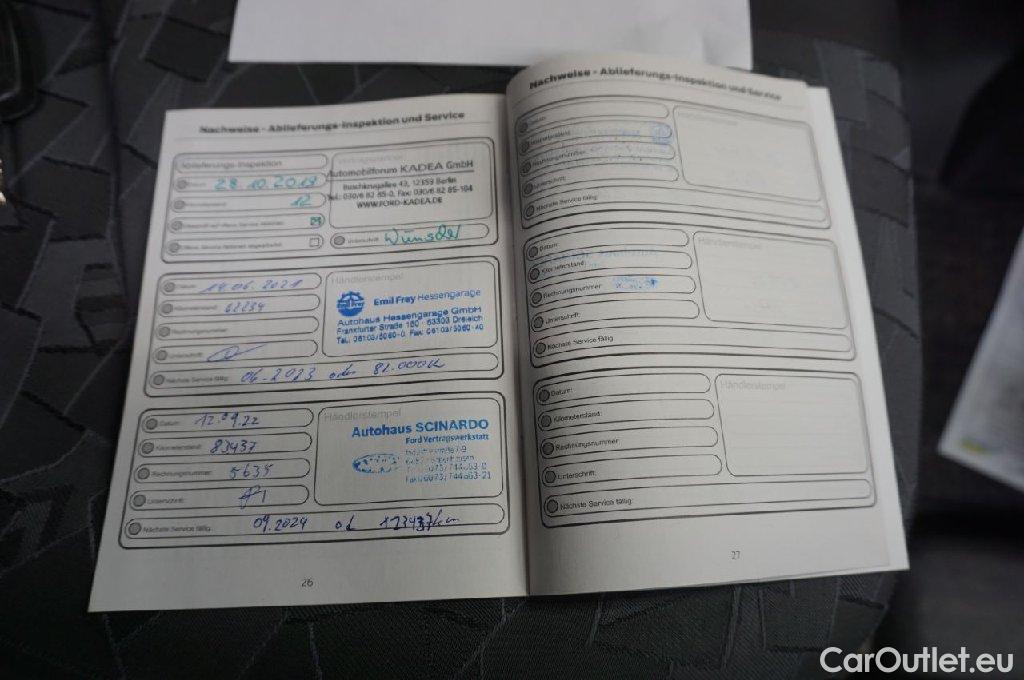 Nachweise - Ablieferungs-Inspektion und Service
Ablieferungs-Inspektion
Datum: 28.10.2019
12
Automobilforum KADEA GmbH
Buschkrugallee 42, 12359 Berlin
Tel.: 030/6 82 85-0, Fax: 030/6 82 85-104
WWW.FORD-KADEA.DE
Unterschrift: Wünscher
Datum: 14.06.2021
62234
Rechnungsnummer:
Unterschrift:
Nächste Service fällig: 06-2023 oder 82.000
Händlerstempel
Emil Frey Hessengarage
Autohaus Hessengarage GmbH
Frankfurter Straße 150 · 63303 Dreieich
Tel. 06103/5060-0, Fax: 06103/5060-40
Datum: 12.09.22
Kilometerstand: 83437
Rechnungsnummer: 5635
Unterschrift:
Nächste Service fällig: 09.2024 od 123437km
Händlerstempel
Autohaus SCINARDO
Ford Vertragswerkstatt
26
Nachweise - Ablieferungs-Inspektion und Service
Datum:
Kilometerstand:
Rechnungsnummer:
Unterschrift:
Nächste Service fällig:
Händlerstempel
Datum:
Kilometerstand:
Rechnungsnummer:
Unterschrift:
Nächste Service fällig:
Händlerstempel
Datum:
Kilometerstand:
Rechnungsnummer:
Unterschrift:
Nächste Service fällig:
Händlerstempel
27
CarOutlet.eu